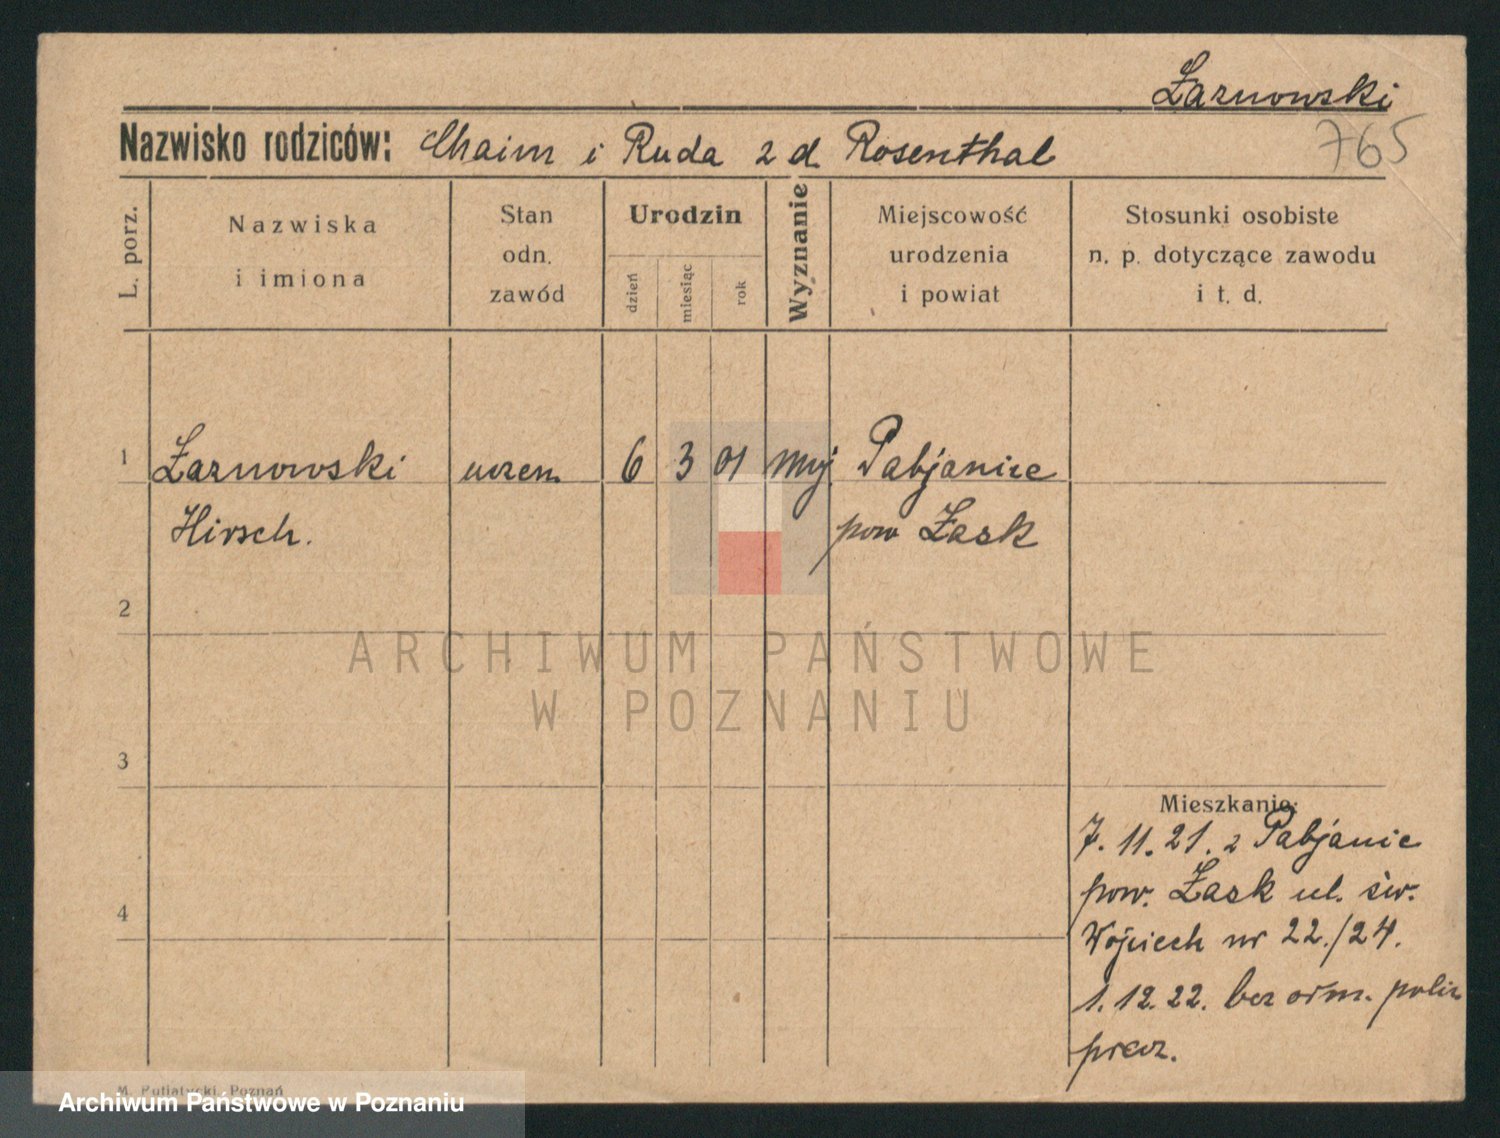 Żarnowski
765
Nazwisko rodziców: Chaim i Ruda z d Rosenthal
L. porz.
Nazwiska
i imiona
Stan
odn.
zawód
Urodzin
dzień
miesiąc
rok
Wyznanie
Miejscowość
urodzenia
i powiat
Stosunki osobiste
n. p. dotyczące zawodu
i t. d.
1 Żarnowski uczen 6 3 01 mojż Pabjanice
Hirsch. pow Łask
2
3
4
Mieszkanie:
7. 11. 21. z Pabjanic
pow. Łask ul. św.
Wojciech nr 22./24.
1. 12. 22. bez polic
M. Putiatycki, Poznań
ARCHIWUM PAŃSTWOWE
W POZNANIU
Archiwum Państwowe w Poznaniu